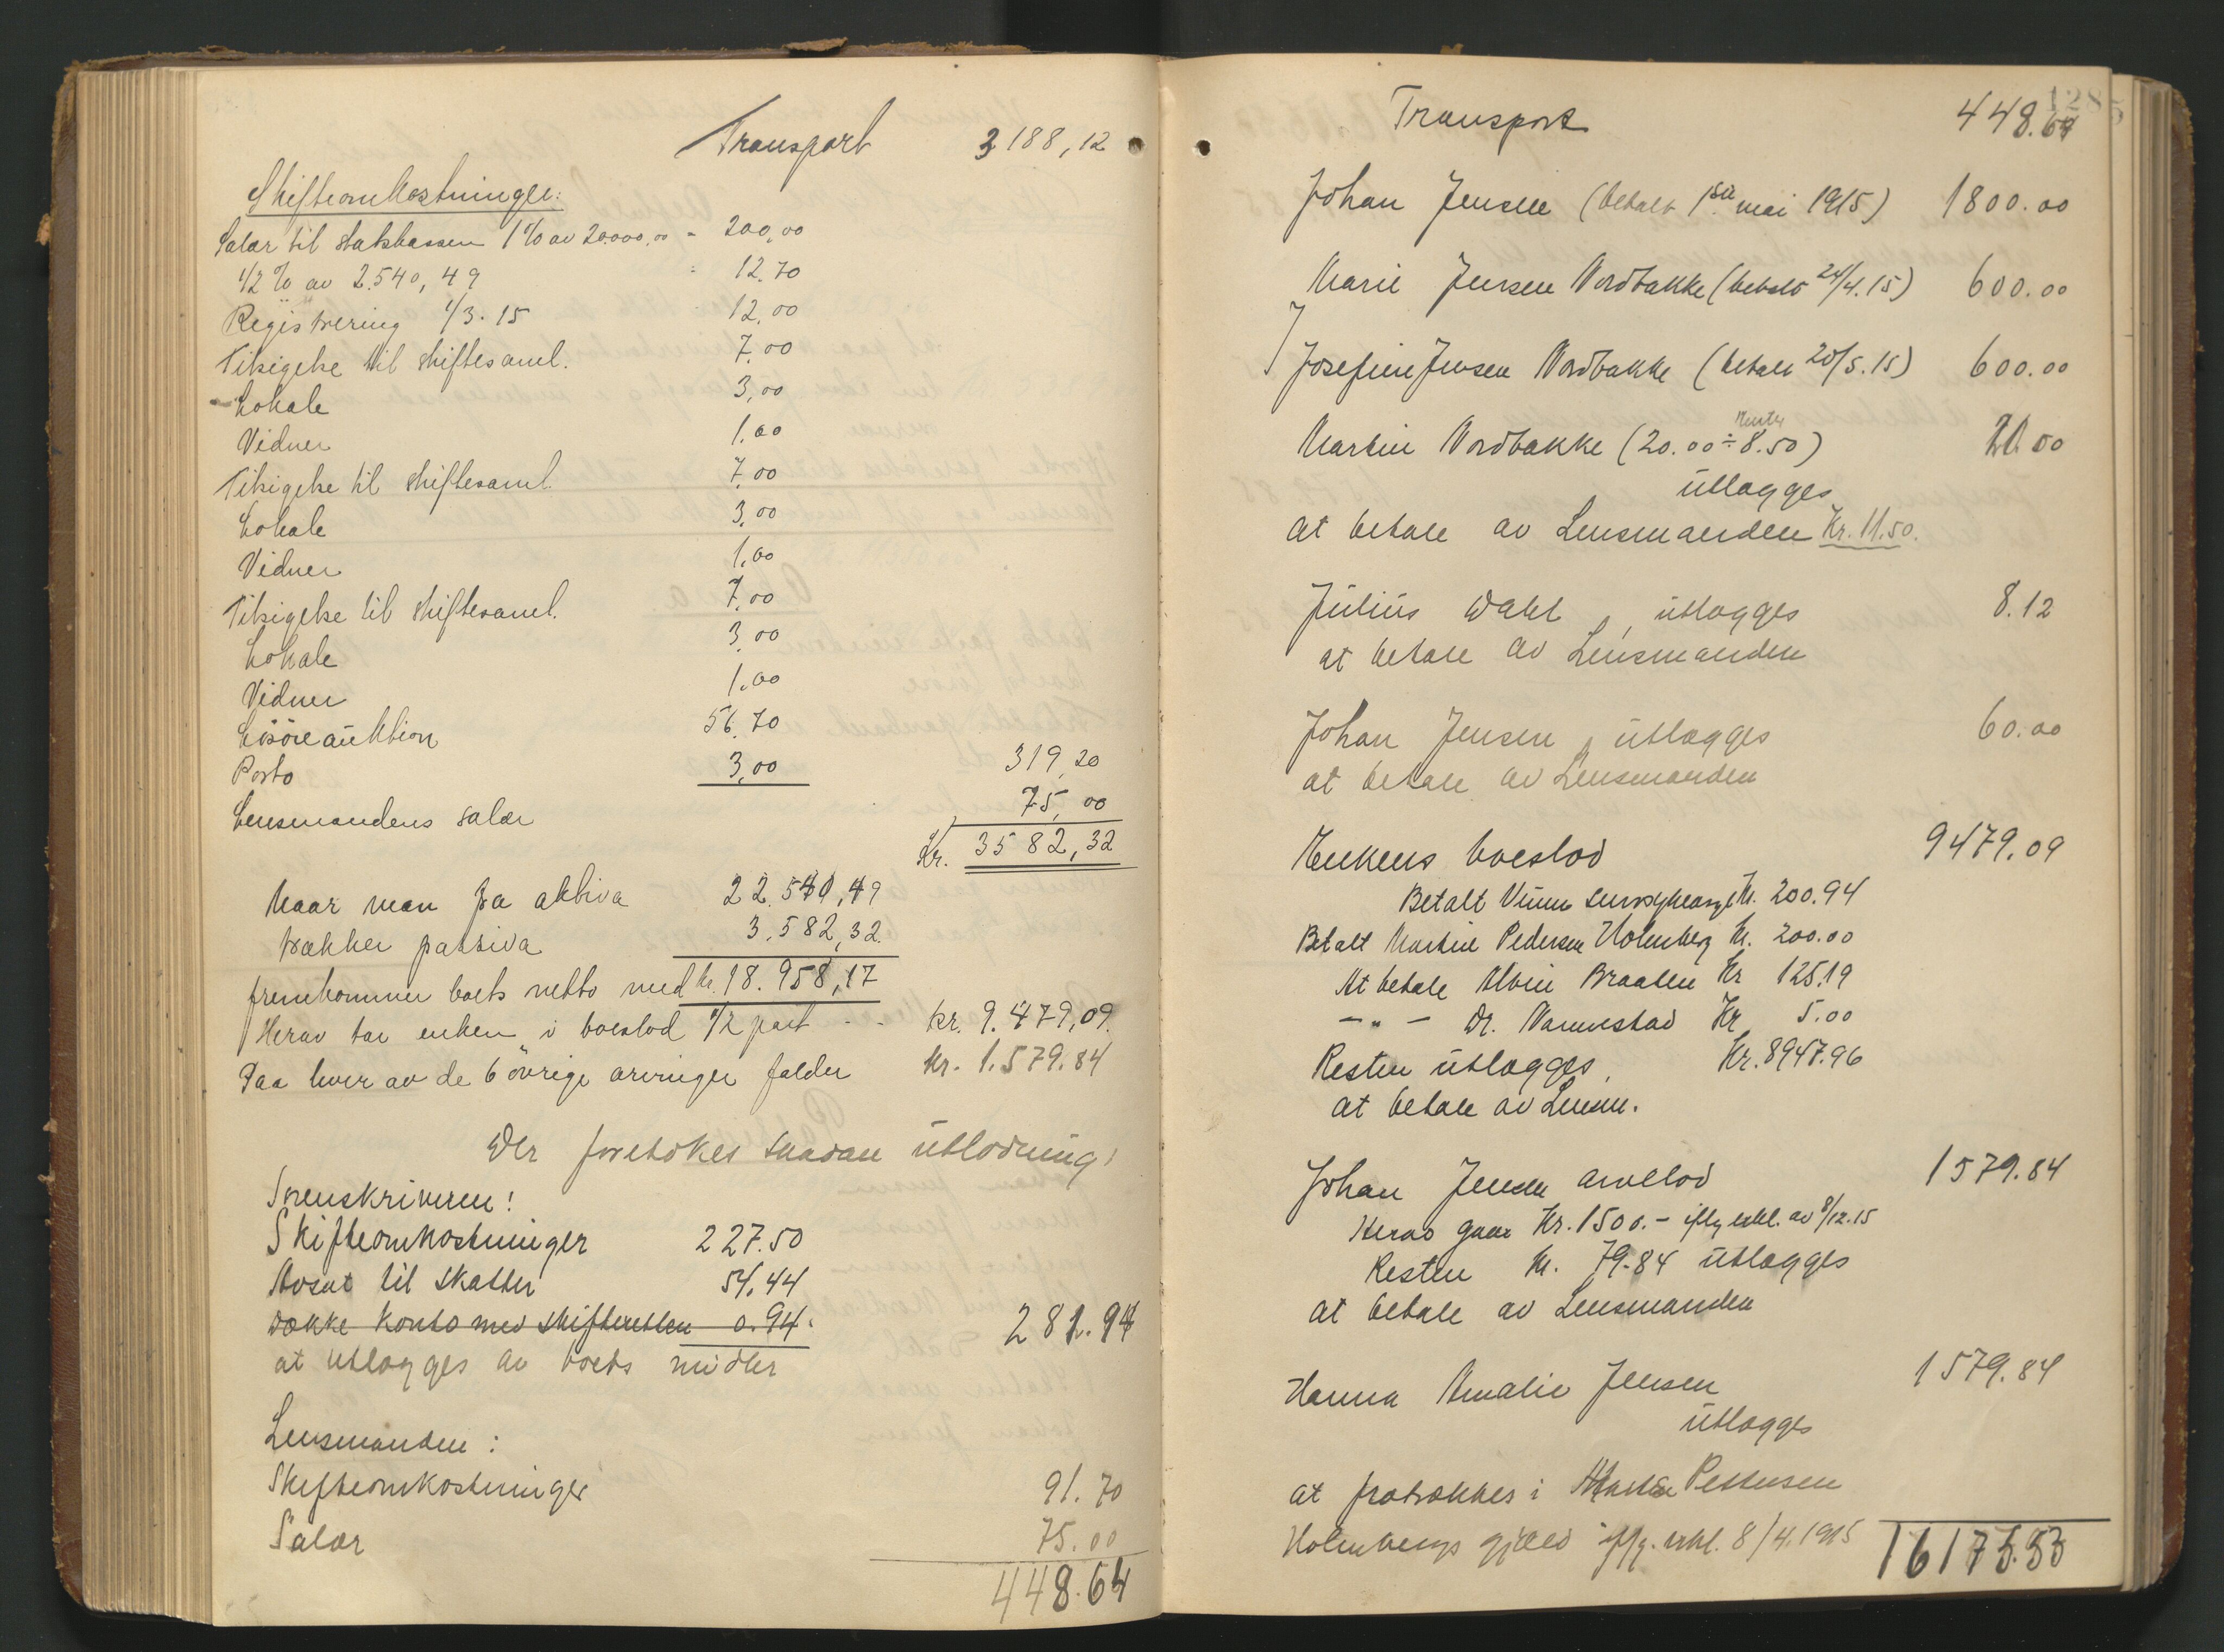 Transport 3188,12
Skifteomkostninger:
Salær til statskassen 1% av 20.000,00 = 200,00
1/2 % av 2.540,49 = 12.70
Registrering 1/3. 15 12,00
Tilsigelse til skiftesaml. 7,00
Lokale 3,00
Vidner 1,00
Tilsigelse til skiftesaml. 7,00
Lokale 3,00
Vidner 1,00
Tilsigelse til skiftesaml. 7,00
Lokale 3,00
Vidner 1,00
Lösöreauktion 56,70
Porto 3,00 319,20
Lensmandens salær 75,00
Kr. 3582,32
Naar man fra aktiva 22.540,49
trækker passiva 3.582,32
fremkommer boets netto med kr. 18.958,17
Herav tar enken i boeslod 1/2 part - - kr. 9.479,09.
Paa hver av de 6 övrige arvinger falder kr. 1.579.84
Der foretokes saadan utlodning:
Sorenskriveren:
Skifteomkostninger 227.50
Avsat til skatter 54.44
Dække konto med skifteretten 0.94.
281.94
at utlægges av boets midler
Lensmanden:
Skifteomkostninger 91.70
Salær 75.00
448.64
128
Transport 448.64
Johan Jensen (betalt 1ste mai 1915) 1800.00
Marie Jensen Nordbakke (betalt 24/4.15) 600.00
Josefine Jensen Nordbakke (betalt 20/5.15) 600.00
Martin Nordbakke (20.00 ÷ 8.50) 20.00
utlægges
at betale av Lensmanden Kr. 11.50.
Julius Dahl, utlægges 8.12
at betale av Lensmanden
Johan Jensen, utlægges 60.00
at betale av Lensmanden
Enkens boeslod 9479.09
Betalt Kr. 200.94
Betalt Martin Pedersen Holmberg Kr. 200.00
At betale Alvin Braaten Kr 125.19
— " — Dr. Kr 5.00
Resten utlægges, Kr. 8947.96
at betale av Lensm.
Johan Jensen arvelod 1579.84
Herav gaar Kr. 1500.- iflg erkl. av 8/12.15
Resten Kr. 79.84 utlægges
at betale av Lensmanden
Hanna Amalie Jensen 1579.84
utlægges
at fratrækkes i Pettersen
Holmbergs gjæld iflg. erkl. 8/4.1915 16175.53